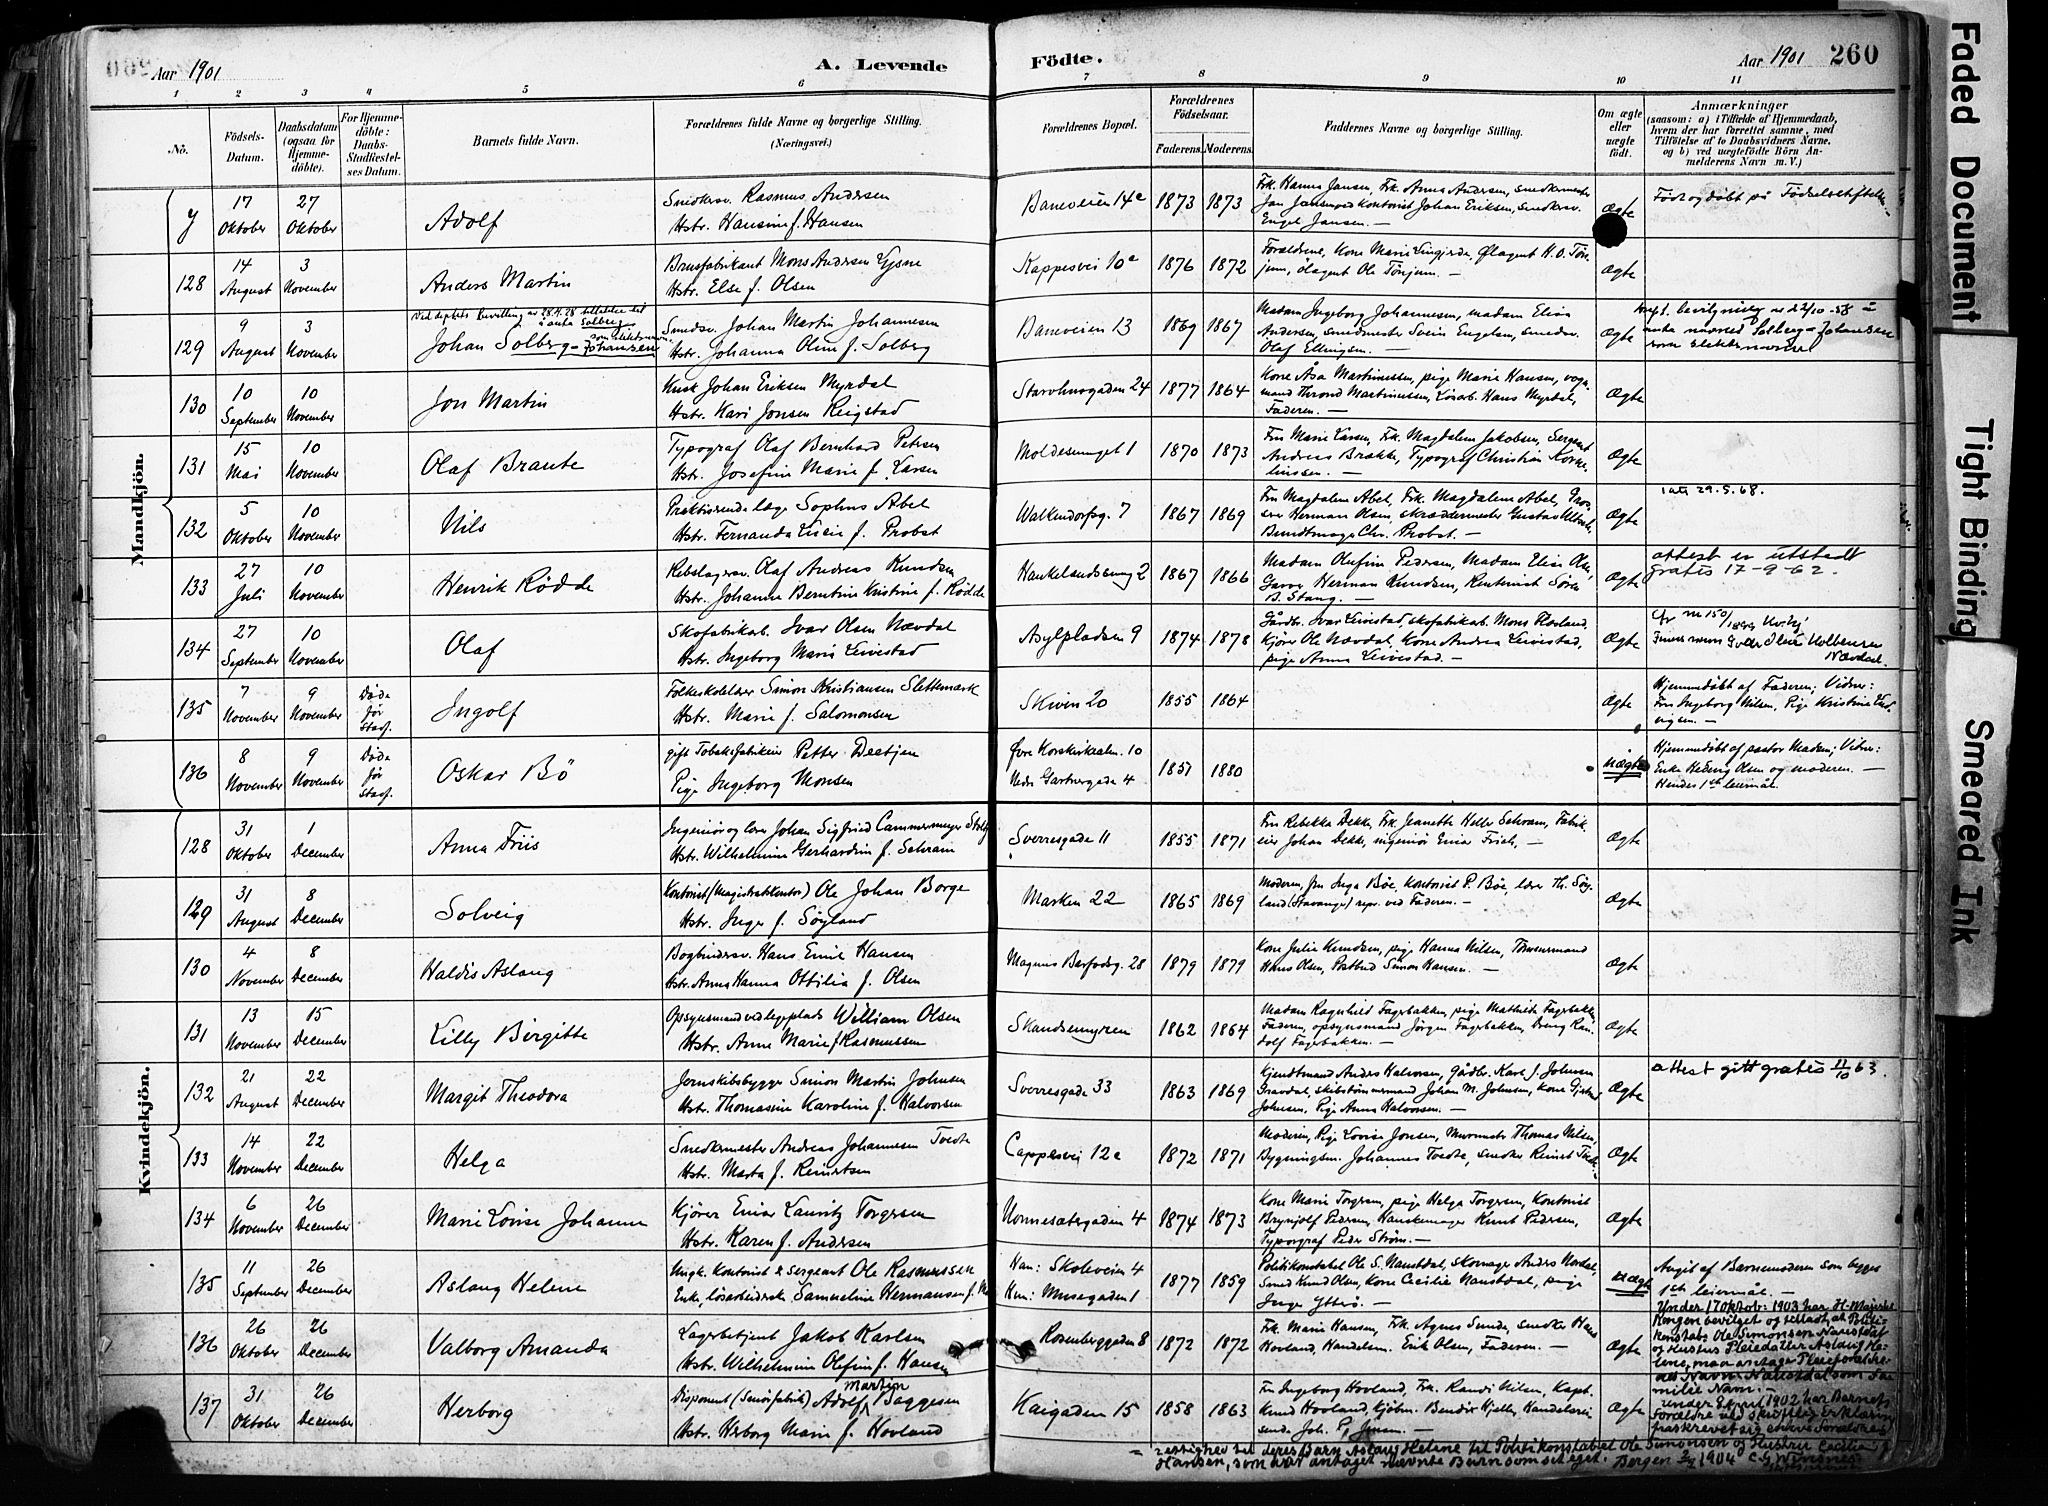 Aar 1901
A. Levende
Fødte.
Aar 1901 260
1 2 3 4 5 6 7 8 9 10 11
No.
Födsels-
Datum.
Daabsdatum
(ogsaa for
Hjemme-
döbte).
For Hjemme-
döbte:
Daabs-
Stadfæstel-
ses Datum.
Barnets fulde Navn.
Forældrenes fulde Navne og borgerlige Stilling.
(Næringsvei.)
Forældrenes Bopæl.
Forældrenes
Födselsaar.
Faderens. Moderens.
Faddernes Navne og borgerlige Stilling.
Om ægte
eller
uægte
födt.
Anmærkninger
(saasom: a) i Tilfælde af Hjemmedaab,
hvem der har forrettet samme, med
Tilföielse af to Daabsvidners Navne.
og b) ved uægtefödte Börn An-
melderens Navn m. V.)
Mandkjön.
y
17 Oktober
27 Oktober
Adolf
Snedkersv. Rasmus Andersen
Hstr. Hansine f. Hansen
Baneveien 14c
1873 1873
Frk. Hanna Jansen, Frk. Anna Andersen, snedkermester
Jan Jansen, Kontorist Johan Eriksen, snedkersv.
Engel Jansen. —
Ægte
Født og døbt på Fødselsstiftelsen
128
14 August
3 November
Anders Martin
Brusfabrikant Mons Andersen Gjsne
Hstr. Else f. Olsen
Kappesvei 10a
1876 1872
Forældrene, Kone Marie Lingjerde, Ølagent H. O. Tøn-
jum, ølagent Ole Tønjum. —
Ægte
129
9 August
3 November
Ved depkets bevilling av 28.4.28 tillatelse til
å anta Solberg
Johan Solberg-Johansen
Smedsv. Johan Martin Johannesen
Hstr. Johanna Oline f. Solberg
Baneveien 23
1869 1867
Madam Ingeborg Johannesen, madam Elisa
Andersen, smedmester Svein Engelsen, smedsv.
Olaf Ellingsen. —
Ægte
Kgl. bevilgning av 22/10-58 å
anta navnet Solberg-Johansen
som slektsnavn
130
10 September
10 November
Jon Martin
Kusk Johan Eriksen Myrdal
Hstr. Kari Jonsen Reigstad
Starvhusgaden 24
1877 1864
Kone Åsa Martinussen, pige Marie Hansen, vogn-
mand Thrond Martinussen, Løsarb. Hans Myrdal,
Faderen. —
Ægte
131
15 Mai
10 November
Olaf Braute
Typograf Olaf Bernhard Petersen
Hstr. Josefine Marie f. Larsen
Moldesmuget 1
1870 1873
Fru Marie Larsen, Frk. Magdalene Jakobsen, Sergeant
Andreas Brække, Typograf Christian Korne-
liussen. —
Ægte
132
5 Oktober
10 November
Nils
Praktiserende læge Sophus Abel
Hstr. Fernanda Lucie f. Probst
Walkendorfsg. 7
1867 1869
Fru Magdalene Abel, Frk. Magdalene Abel, Gros-
serer Herman Olsen, skræddermester Gustav
Bundtmager Chr. Probst. —
Ægte
29.5.68.
133
27 Juli
10 November
Henrik Rødde
Rebslagersv. Olaf Andreas Knudsen
Hstr. Johanne Berntine Kristine f. Rødde
Haukelandssmug 2
1867 1866
Madam Olufine Pedersen, Madam Elise Olsen,
Garver Herman Knudsen, Kontorist Søren
B. Stang. —
Ægte
attest er utstedt
gratis 17-9-62.
134
27 September
10 November
Olaf
Skofabrikarb. Ivar Olsen Nævdal
Hstr. Ingeborg Marie Leivestad
Asylpladsen 9
1874 1878
Gårdbr. Ivar Leivestad, skofabrikarb. Mons Hovland,
Kjører Ole Nævdal, Kone Andrea Leivestad,
pige Anna Leivestad. —
Ægte
Nævdal.
135
7 November
9 November
Døde
før
Stadf.
Ingolf
Folkeskolelærer Simon Kristiansen Slettemark
Hstr. Marie f. Salomonsen
Skiven 20
1855 1864
Ægte
Hjemmedøbt af Faderen; Vidner:
Fru Ingeborg Nilsen, Pige Kristine Lud-
vigsen. —
136
8 November
9 November
Døde
før
Stadf.
Oskar Bø
gift Tobaksfabrikeier Petter Deetjen
Pige Ingeborg Monsen
Øvre Korskirkealm. 10
Nedre Gartnergade 4
1857 1880
Uægte
Hjemmedøbt af pastor Madsen; Vidner:
Enke Hedvig Olsen og moderen. —
Hendes 1ste leiermål.
Kvindekjön.
128
31 Oktober
1 December
Anna Friis
Ingeniør og lærer Johan Sigfried Cammermeyer Stoltz
Hstr. Wilhelmine Gerhardine f. Schram
Sverresgade 11
1855 1871
Fru Rebekka Dekke, Frk. Jeanette Heller Schram, Fabrik-
eier Johan Dekke, ingeniør Einar Frich. —
Ægte
129
31 August
8 December
Solveig
Kontorist (Magistratskontor) Ole Johan Borge
Hstr. Inger f. Søyland
Marken 22
1865 1869
Moderen, fru Inga Bøe, Kontorist P. Bøe, lærer Th. Søy-
land (Stavanger) repr. ved Faderen. —
Ægte
130
4 November
8 December
Haldis Aslaug
Bogbindersv. Hans Emil Hansen
Hstr. Anna Hanna Ottilia f. Olsen
Magnus Barfodsg. 28
1879 1879
Kone Julie Knudsen, pige Hanna Nilsen,
Hans Olsen, Postbud Simon Hansen. —
Ægte
131
13 November
15 December
Lilly Birgitte
Opsynsmand ved legeplads William Olsen
Hstr. Anne Marie f. Rasmussen
Skandsemyren
1862 1864
Madam Ragnhild Fagerbakken, pige Mathilde Fagerbakken,
Faderen, opsynsmand Jørgen Fagerbakken, Dreng Ran-
dolf Fagerbakken. —
Ægte
132
21 August
22 December
Margit Theodora
Jernskibsbygger Simon Martin Johnsen
Hstr. Thomasine Karoline f. Halvorsen
Sverresgade 33
1863 1869
Kjendtmand Anders Halvorsen, Gårdbr. Karl J. Johnsen
Gravdal, skibstømmermand Johan M. Johnsen, Kone
Johnsen, Pige Anna Halvorsen. —
Ægte
attest gitt gratis 11/10 63.
133
14 November
22 December
Helga
Snedkermester Andreas Johannesen Tvedte
Hstr. Marta f. Reiertsen
Cappesvei 12c
1872 1871
Moderen, Pige Lovise Jonsen, Murmester Thomas Nilsen,
Bygningsm. Johannes Tvedte, snedker Reinert Tvedte.
Ægte
134
6 November
26 December
Marie Lovise Johanne
Kjører Einar Lauritz Torgersen
Hstr. Karen f. Andersen
Nonnesætergaden 4
1874 1873
Kone Marie Torgersen, pige Helga Torgersen, Kontorist
Brynjolf Pedersen, Hanskemager Knut Pedersen,
Typograf Peder Strøm. —
Ægte
135
11 September
26 December
Aslaug Helene
Ungk. Kontorist & sergeant Ole Rasmussen
Enke, løsarbeiderske Sameline Hermansen f.
Han: Skoleveien 4
Hun: Musegaden 1
1877 1859
Politikonstabel Ole S. Naustdal, skomager Anders Nordal,
Smed Knud Olsen, Kone Cecilie Naustdal, pige
Inger Ytterø. —
Uægte
Angit af Barnemoderen som begges
1ste leiermål. —
Under 17 Oktob: 1903 har H. Majestæt
Kongen bevilget og tilladt, at Politi-
konstabel Ole Simonsen Naustdal
og Hustrus Pleiedatter Aslaug He-
lene, maa antage Pleieforældre-
nes Navn Naustdal som Fa-
milie Navn. —
136
26 Oktober
26 December
Valborg Amanda
Lagerbetjent Jakob Karlsen
Hstr. Wilhelmine Olefine f. Hansen
Rosenberggaden 8
1872 1872
Frk. Marie Hansen, Frk. Agnes Sunde, snedker Hans
Hovland, Handelsm. Erik Olsen, Faderen. —
Ægte
137
31 Oktober
26 December
Herborg
Disponent (Senørfabrik) Adolf Martin Baggesen
Hstr. Herborg Marie f. Hovland
Kaigaden 15
1858 1863
Fru Ingeborg Hovland, Frk. Randi Nilsen, Kapt.
Knud Hovland, Kjøbm. Bendix Hjelle, Handelsrei-
sende Joh. P. Jensen. —
Ægte
Under 8 April 1902 har Barnets
Forældre ved skriftlig Erklæring
fraskrevet sig enhver Forældre-
= rettighed til deres Barn Aslaug Helene til Politikonstabel Ole Simonsen og Hustru Cecilia f.
Hansen, som har antaget nævnte Barn som sit eget. Bergen 2/4 1904
Faded Document
Tight Binding
Smeared Ink